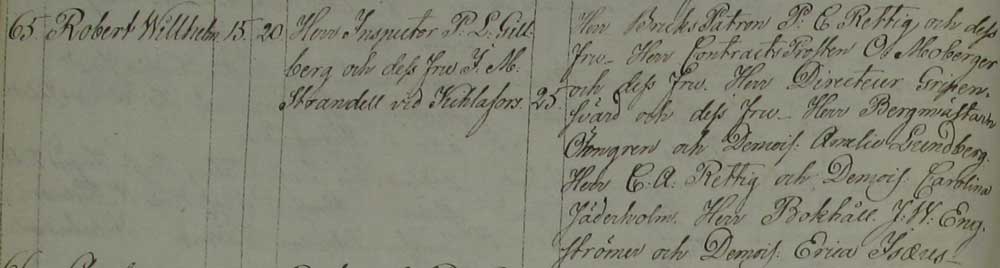 65. Robert Willhelm 15. 20. Herr Inspector P. L. Gill-
berg och dess fru J. M.
Strandell vid Kihlafors. 25.
Herr Bruks Patron P. C. Rettig och dess
fru_ Herr Contracts Prosten O. Moberger
och dess fru. Herr Directeur Gripen-
svärd och dess fru_ Herr Bergmästaren
Öhngren och Demois. Amelie Lundberg.
Herr C. A. Rettig och Demois. Carolina
Jäderholm. Herr Bokhåll. J. W. Eng-
strömer och Demois. Erica Isæus_